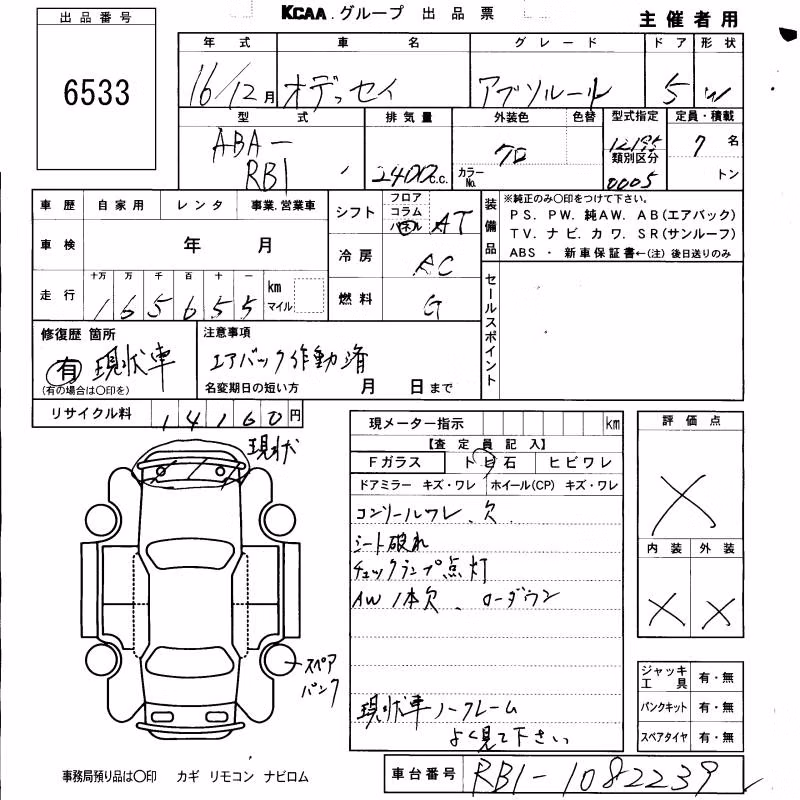 KCAA.グループ 出品票
主催者用
出品番号
6533
年式 車名 グレード ドア 形状
16/12月 オデッセイ アブソルート 5 W
型式 排気量 外装色 色替 型式指定 定員・積載
ABA-
RB1
2400c.c. クロ
カラーNo.
12195
類別区分
0005
7名
トン
車歴 自家用 レンタ 事業.営業車
車検 年 月
走行 十万 万 千 百 十 一
165655 km マイル
シフト フロア コラム パネル AT
冷房 AC
燃料 G
装備品
※純正のみ〇印をつけて下さい。
PS. PW. 純AW. AB(エアバック)
TV. ナビ. カワ. SR(サンルーフ)
ABS ・ 新車保証書←(注) 後日送りのみ
セールスポイント
修復歴 箇所
有 現状車
(有の場合は〇印を)
注意事項
エアバック作動済
名変期日の短い方 月 日まで
リサイクル料 14160円
現状
現メーター指示 km
【査定員記入】
Fガラス トビ石 ヒビワレ
ドアミラー キズ・ワレ ホイール(CP) キズ・ワレ
コンソールワレ、欠、
シート破れ
チェックランプ点灯
AW 1本欠、ローダウン
現状車ノークレーム
よく見て下さい
評価点
内装 外装
ジャッキ工具 有・無
パンクキット 有・無
スペアタイヤ 有・無
スペア
パンク
事務局預り品は〇印 カギ リモコン ナビロム
車台番号 RB1-1082239